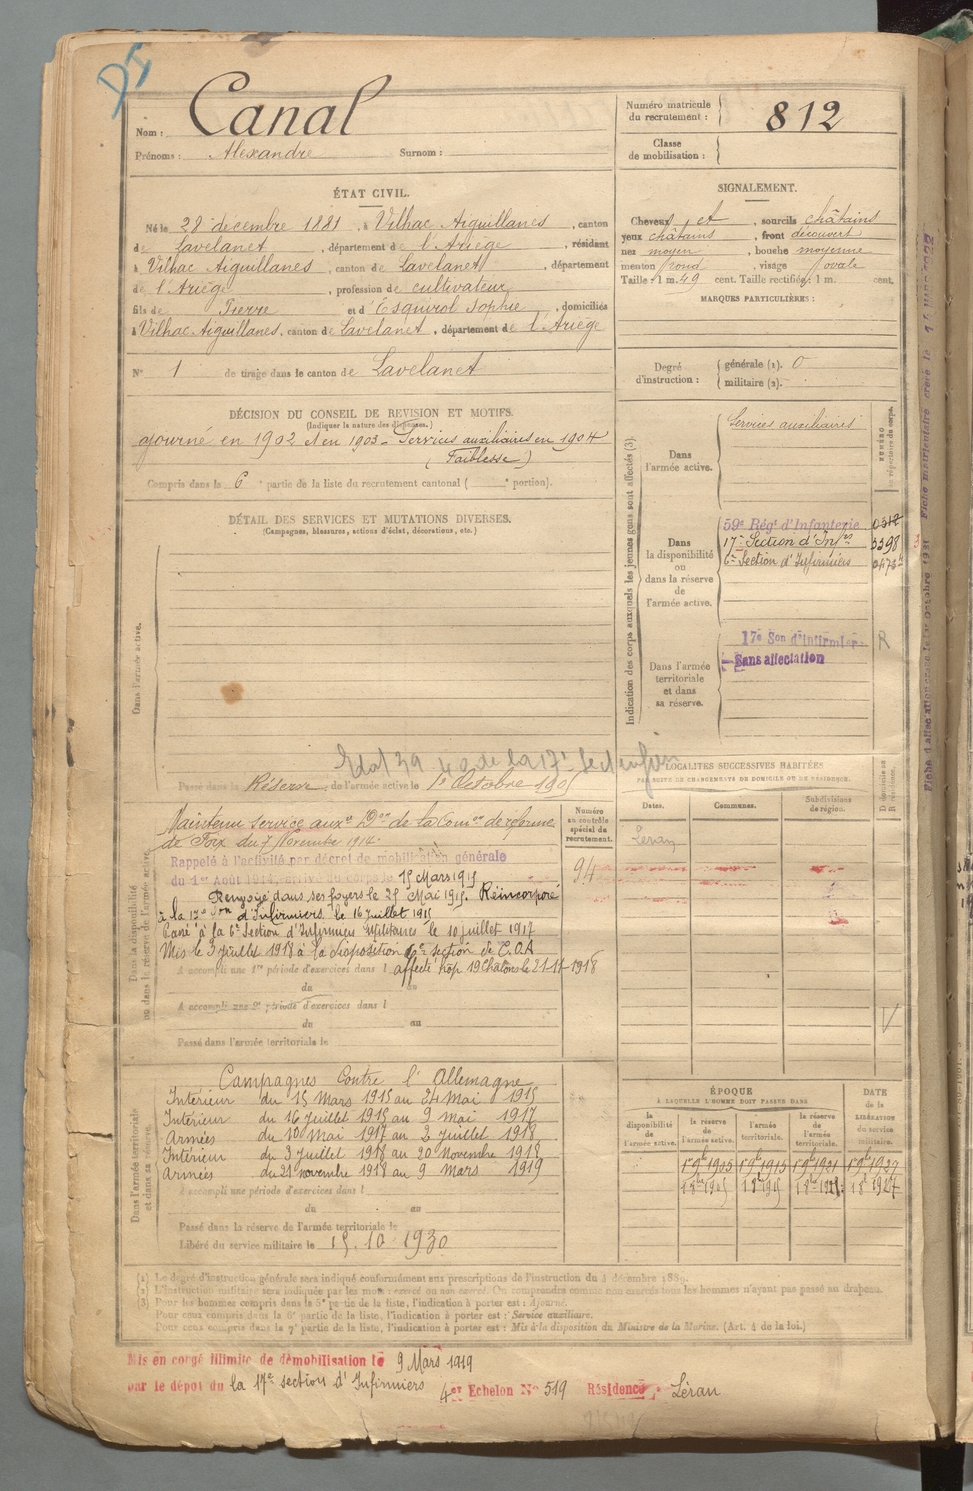 Nom : Canal
Prénoms : Alexandre Surnom :
Numéro matricule du recrutement : 812
Classe de mobilisation :
ÉTAT CIVIL.
Né le 28 décembre 1881, à Vilhac Aiguillanes, canton
de Lavelanet, département de l'Ariège, résidant
à Vilhac Aiguillanes, canton de Lavelanet, département
de l'Ariège, profession de cultivateur
fils de Pierre et d'Esquirol Sophie, domiciliés
à Vilhac Aiguillanes, canton de Lavelanet, département de l'Ariège
N° 1 de tirage dans le canton de Lavelanet
SIGNALEMENT.
Cheveux et, sourcils châtains
yeux châtains, front découvert
nez moyen, bouche moyenne
menton rond, visage ovale
Taille : 1 m. 49 cent. Taille rectifiée : 1 m. cent.
MARQUES PARTICULIÈRES :
Degré d'instruction : générale (1). 0
militaire (2).
DÉCISION DU CONSEIL DE REVISION ET MOTIFS.
(Indiquer la nature des dispenses.)
ajourné en 1902 et en 1903 - Services auxiliaires en 1904
(Faiblesse)
Compris dans la 6e partie de la liste du recrutement cantonal ( e portion).
DÉTAIL DES SERVICES ET MUTATIONS DIVERSES.
(Campagnes, blessures, actions d'éclat, décorations, etc.)
Dans l'armée active.
Indication des corps auxquels les jeunes gens sont affectés (3).
NUMÉRO au répertoire du corps.
Dans l'armée active. Services auxiliaires
Dans la disponibilité ou dans la réserve de l'armée active.
59e Régt d'Infanterie
17e Section d'Infrs 3398
6e Section d'Infirmiers
Dans l'armée territoriale et dans sa réserve.
17e Son d'Infirmiers R
Sans affectation
Passé dans la Réserve de l'armée active le 1er Octobre 1905
LOCALITÉS SUCCESSIVES HABITÉES
PAR SUITE DE CHANGEMENTS DE DOMICILE OU DE RÉSIDENCE.
Dates. Communes. Subdivisions de région.
Léran
Numéro au contrôle spécial du recrutement.
94
Dans la disponibilité ou dans la réserve de l'armée active.
Maintenu service auxre Don de la Comon de réforme
de Foix du 7 Novembre 1914.
Rappelé à l'activité par décret de mobilisation générale
du 1er Août 1914, arrivé au corps le 15 Mars 1915
Renvoyé dans ses foyers le 25 Mai 1915. Réincorporé
à la 17e Son d'Infirmiers le 16 juillet 1915
Passé à la 6e Section d'Infirmiers Militaires le 10 juillet 1917
Mis le 3 juillet 1918 à la disposition 6e section de C.O.A
A accompli une 1re période d'exercices dans l affecté hôp 19 Châlons le 21-11-1918
du au
A accompli une 2e période d'exercices dans l
du au
Passé dans l'armée territoriale le
Dans l'armée territoriale et dans sa réserve.
Campagnes Contre l'Allemagne
Intérieur du 15 Mars 1915 au 24 Mai 1915
Intérieur du 16 juillet 1915 au 9 mai 1917
Armées du 10 Mai 1917 au 2 juillet 1918
Intérieur du 3 juillet 1918 au 20 Novembre 1918
Armées du 21 novembre 1918 au 9 mars 1919
A accompli une période d'exercices dans l
du au
Passé dans la réserve de l'armée territoriale le
Libéré du service militaire le 15.10.1930
ÉPOQUE À LAQUELLE L'HOMME DOIT PASSER DANS
la disponibilité de l'armée active. la réserve de l'armée active. l'armée territoriale. la réserve de l'armée territoriale.
DATE de la LIBÉRATION du service militaire.
(1) Le degré d'instruction générale sera indiqué conformément aux prescriptions de l'instruction du 4 décembre 1889.
(2) L'instruction militaire sera indiquée par les mots : exercé ou non exercé. On comprendra comme non exercés tous les hommes n'ayant pas passé au drapeau.
(3) Pour les hommes compris dans la 5e partie de la liste, l'indication à porter est : Ajourné.
Pour ceux compris dans la 6e partie de la liste, l'indication à porter est : Service auxiliaire.
Pour ceux compris dans la 7e partie de la liste, l'indication à porter est : Mis à la disposition du Ministre de la Marine. (Art. 4 de la loi.)
Mis en congé illimité de démobilisation le 9 Mars 1919
par le dépôt du la 17e section d'Infirmiers 4er Echelon N° 519 Résidence : Léran